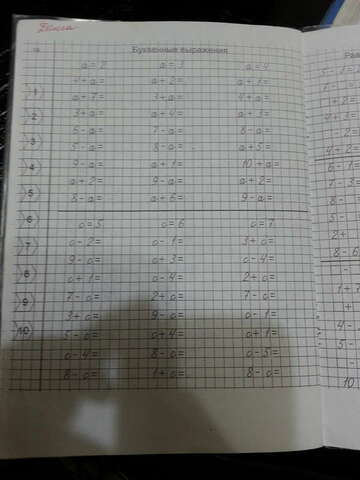 Денса
Буквенные выражения
a=2 a=3 a=4
4+a= a+2= a+1=
a+7= 3+a= 4+a=
3+a= a+4= a+3=
6-a= 7-a= 8-a=
5-a= 8-a= a+5=
9-a= a+1= 10+a=
a+2= 9-a= a+2=
8-a= a+6= 9-a=
a=5 a=6 a=7
a-2= a-1= 3+a=
9-a= a+3= a-4=
a+1= a-4= 2+a=
7-a= 2+a= 7-a=
3+a= 9-a= a-1=
5-a= a+4= a+1=
a-4= 8-a= a-5=
8-a= 1+a= 8-a=
1
2
3
4
5
6
7
8
9
10